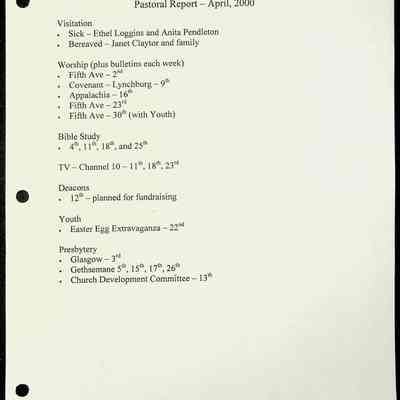 Pastoral Report – April, 2000
Visitation
• Sick – Ethel Loggins and Anita Pendleton
• Bereaved – Janet Claytor and family
Worship (plus bulletins each week)
• Fifth Ave – 2nd
• Covenant – Lynchburg – 9th
• Appalachia – 16th
• Fifth Ave – 23rd
• Fifth Ave – 30th (with Youth)
Bible Study
• 4th, 11th, 18th, and 25th
TV – Channel 10 – 11th, 18th, 23rd
Deacons
• 12th – planned for fundraising
Youth
• Easter Egg Extravaganza – 22nd
Presbytery
• Glasgow – 3rd
• Gethsemane 5th, 15th, 17th, 26th
• Church Development Committee – 13th